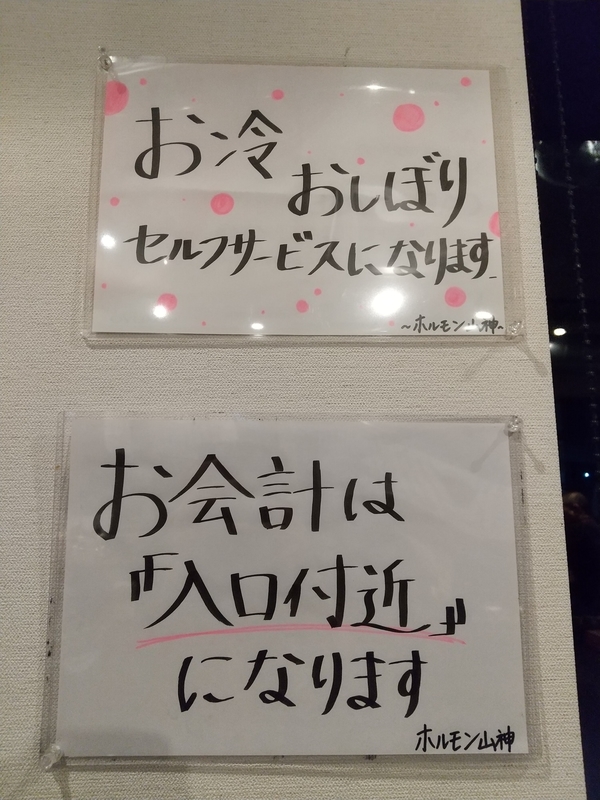 お冷
おしぼり
セルフサービスになります
~ホルモン山神~
お会計は
『入口付近』
になります
ホルモン山神